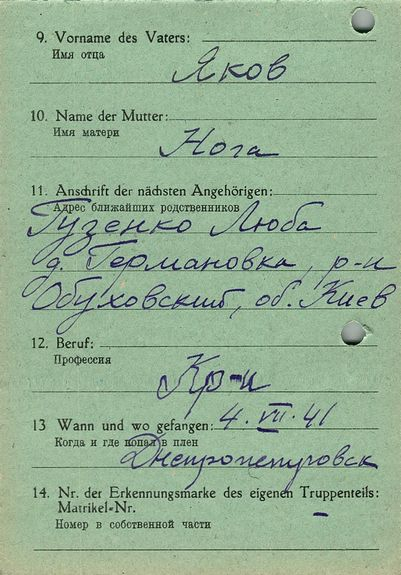 9. Vorname des Vaters:
Имя отца
Яков
10. Name der Mutter:
Имя матери
Нога
11. Anschrift der nächsten Angehörigen:
Адрес ближайших родственников
Гузенко Люба
д. Германовка, р-н
Обуховский, об. Киев
12. Beruf:
Профессия
Кр-н
13 Wann und wo gefangen: 4. VII. 41
Когда и где попал в плен
Днепропетровск
14. Nr. der Erkennungsmarke des eigenen Truppenteils:
Matrikel-Nr.
Номер в собственной части
–